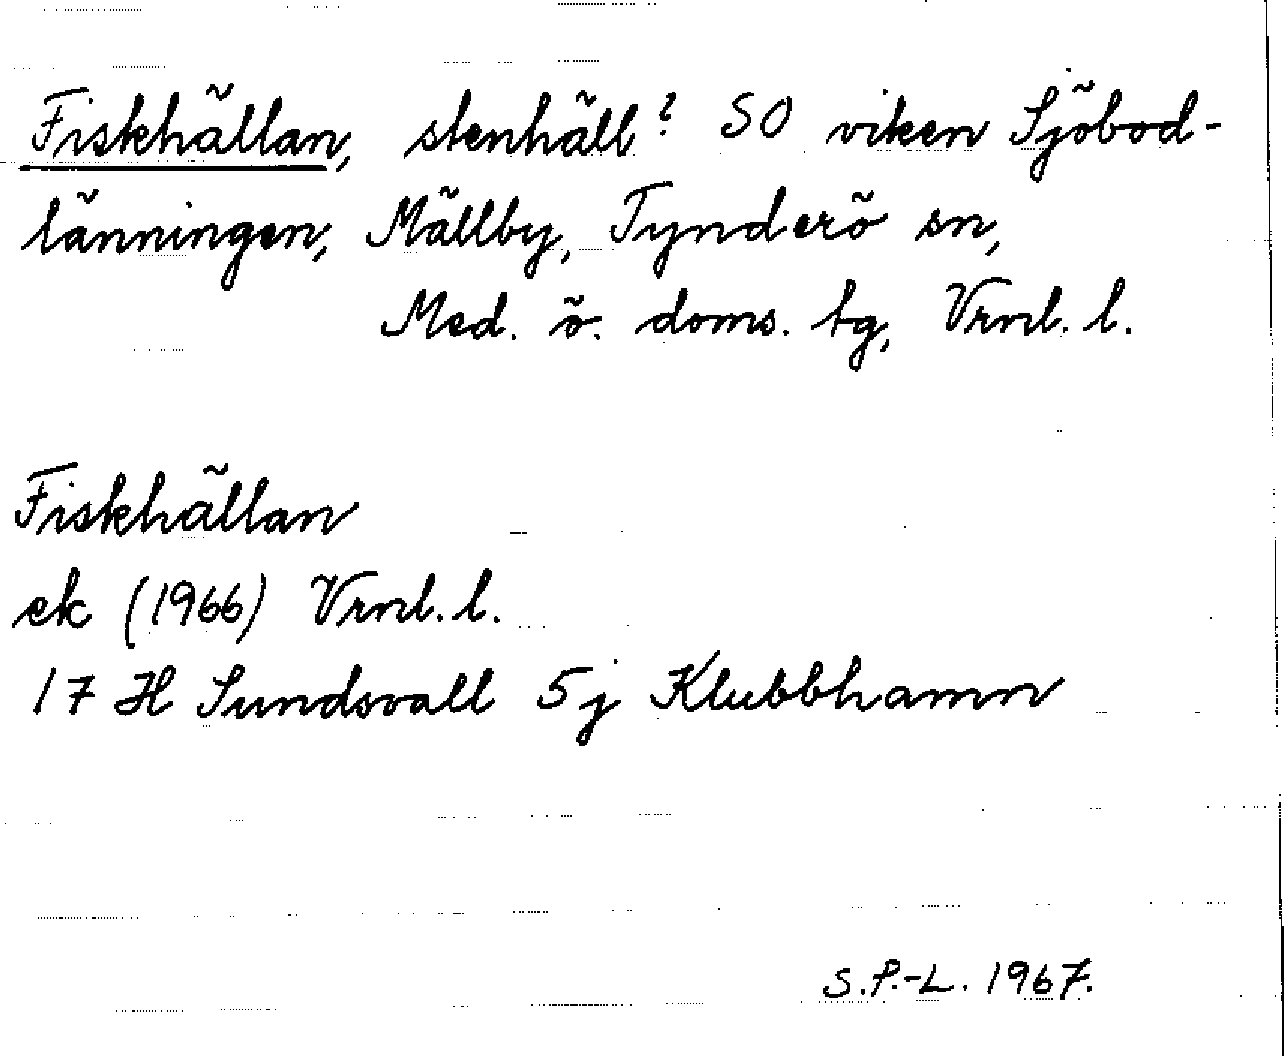 Fiskhällan, stenhäll? SO viken Sjöbod-
länningen, Mällby, Tynderö sn,
Med. ö. doms. tg, Vrnl. l.
Fiskhällan
ek (1966) Vrnl. l.
17 H Sundsvall 5j Klubbhamn
S.P.-L. 1967.